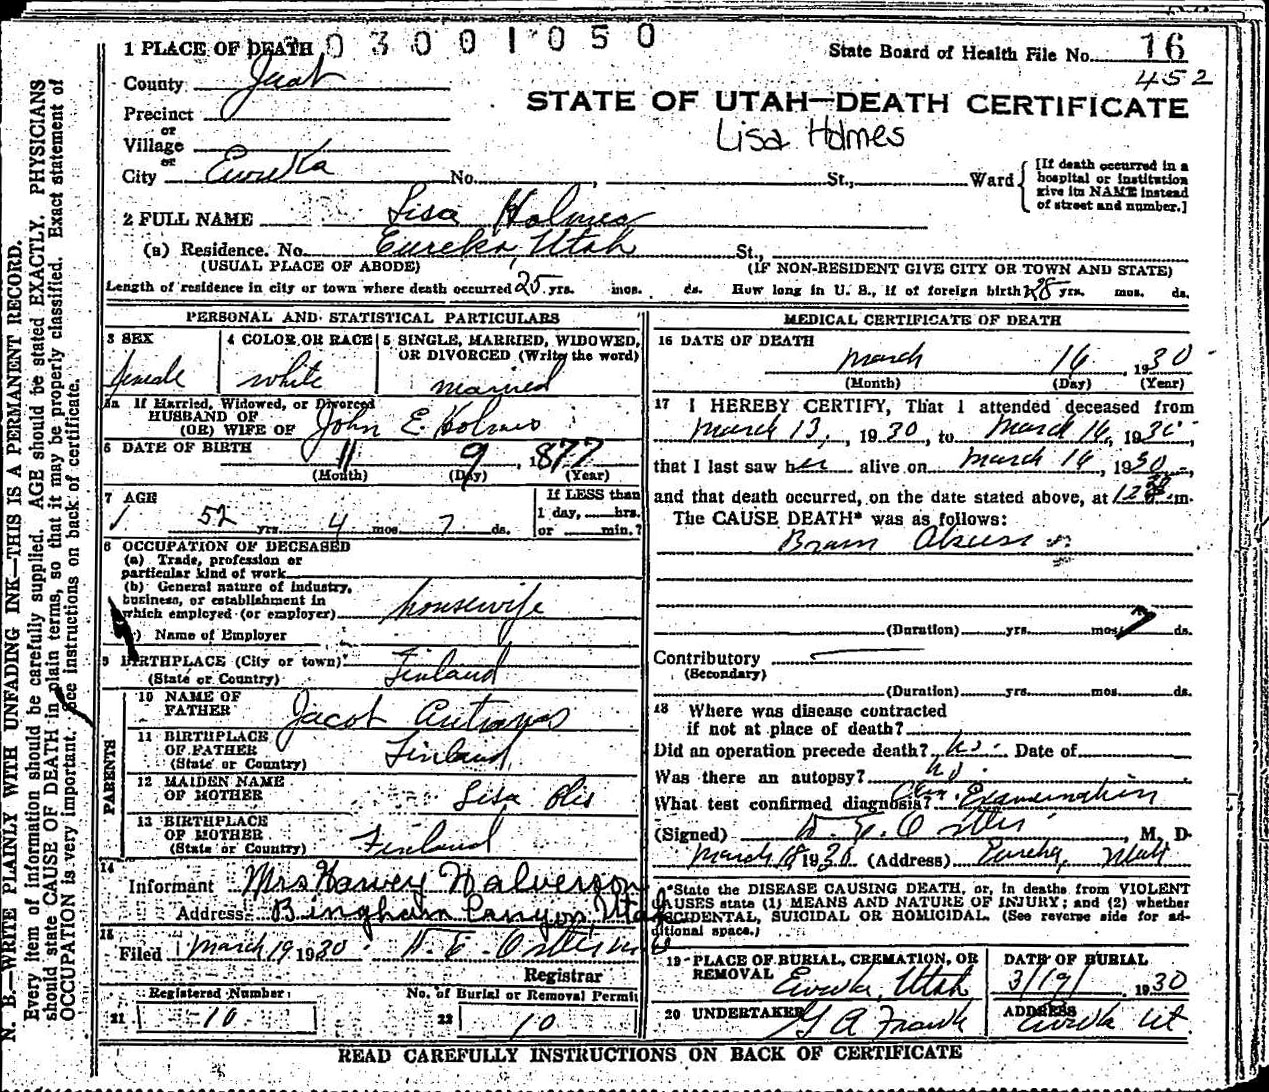 1 PLACE OF DEATH 0 3 0 0 1 0 5 0
State Board of Health File No. 16
452
County Juab
STATE OF UTAH—DEATH CERTIFICATE
Precinct
or
Lisa Holmes
Village
or
City Eureka No. , St., Ward
[If death occurred in a
hospital or institution
give its NAME instead
of street and number.]
2 FULL NAME Lisa Holmes
(a) Residence. No. Eureka, Utah St.,
(USUAL PLACE OF ABODE) (IF NON-RESIDENT GIVE CITY OR TOWN AND STATE)
Length of residence in city or town where death occurred 25 yrs. mos. ds. How long in U. S., if of foreign birth? 28 yrs. mos. ds.
PERSONAL AND STATISTICAL PARTICULARS
3 SEX
female
4 COLOR OR RACE
white
5 SINGLE, MARRIED, WIDOWED,
OR DIVORCED (Write the word)
married
5a If Married, Widowed, or Divorced
HUSBAND OF
(OR) WIFE OF John E. Holmes
6 DATE OF BIRTH
11 9, 1877
(Month) (Day) (Year)
7 AGE
52 yrs. 4 mos. 7 ds.
If LESS than
1 day, hrs.
or min.?
8 OCCUPATION OF DECEASED
(a) Trade, profession or
particular kind of work
(b) General nature of industry,
business, or establishment in
which employed (or employer) housewife
) Name of Employer
9 BIRTHPLACE (City or town)
(State or Country) Finland
PARENTS
10 NAME OF
FATHER Jacob
11 BIRTHPLACE
OF FATHER
(State or Country) Finland
12 MAIDEN NAME
OF MOTHER Lisa
13 BIRTHPLACE
OF MOTHER
(State or Country) Finland
14
Informant Mrs Harvey Halverson
Address Bingham Canyon Utah
15
Filed March 19 1930
Registrar
Registered Number
21 10
No. of Burial or Removal Permit
22 10
MEDICAL CERTIFICATE OF DEATH
16 DATE OF DEATH
March 16, 1930
(Month) (Day) (Year)
17 I HEREBY CERTIFY, That I attended deceased from
March 13, 1930, to March 16, 1930,
that I last saw her alive on March 16, 1930,
and that death occurred, on the date stated above, at m.
The CAUSE DEATH* was as follows:
Brain Abscess
(Duration) yrs. mos. 7 ds.
Contributory
(Secondary)
(Duration) yrs. mos. ds.
18 Where was disease contracted
if not at place of death?
Did an operation precede death? no. Date of
Was there an autopsy? no.
What test confirmed diagnosis? Examination
(Signed) , M. D.
March 18 1930 (Address) Eureka, Utah
*State the DISEASE CAUSING DEATH, or, in deaths from VIOLENT
CAUSES state (1) MEANS AND NATURE OF INJURY; and (2) whether
ACCIDENTAL, SUICIDAL OR HOMICIDAL. (See reverse side for ad-
ditional space.)
19 PLACE OF BURIAL, CREMATION, OR
REMOVAL Eureka, Utah
DATE OF BURIAL
3/19/, 1930
20 UNDERTAKER G A Frank
ADDRESS
Eureka Ut.
READ CAREFULLY INSTRUCTIONS ON BACK OF CERTIFICATE
N. B.—WRITE PLAINLY WITH UNFADING INK—THIS IS A PERMANENT RECORD.
Every item of information should be carefully supplied. AGE should be stated EXACTLY. PHYSICIANS
should state CAUSE OF DEATH in plain terms, so that it may be properly classified. Exact statement of
OCCUPATION is very important. See instructions on back of certificate.